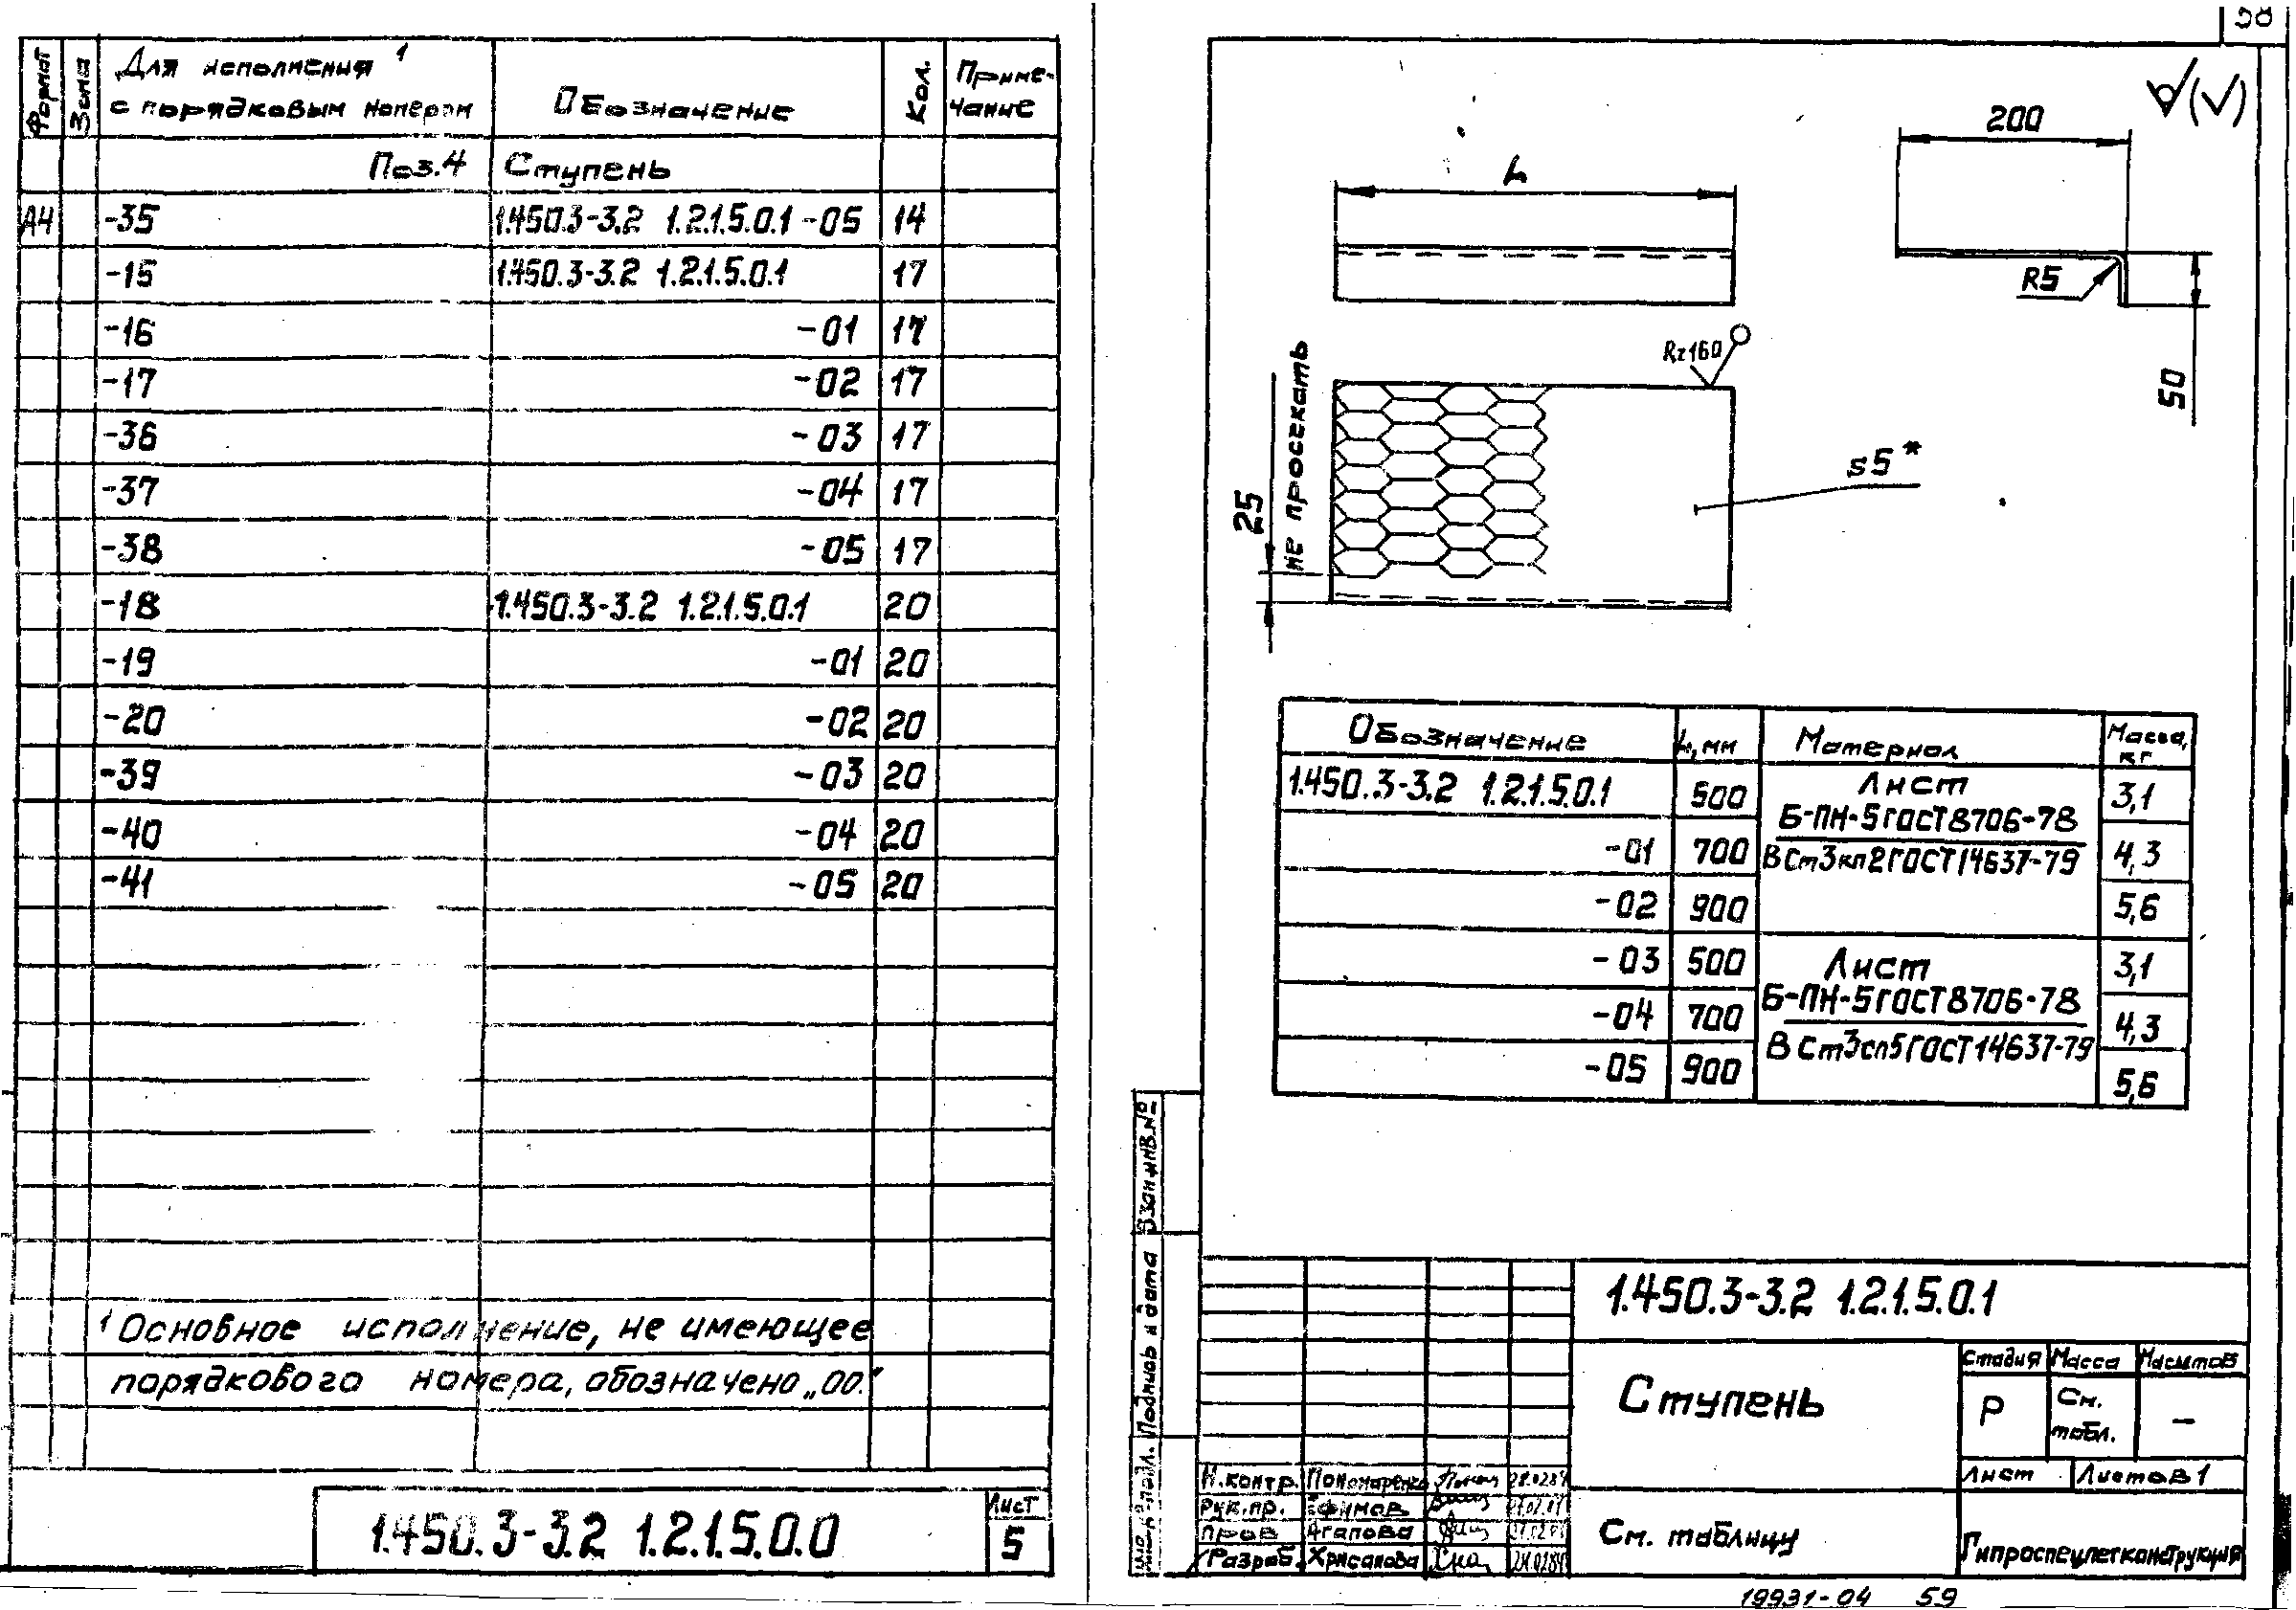 58
Формат Зона Для исполнения¹ с порядковым номером Обозначение Кол. Примечание
Поз.4 Ступень
А4 -35 1.450.3-3.2 1.2.1.5.0.1 -05 14
-15 1.450.3-3.2 1.2.1.5.0.1 17
-16 -01 17
-17 -02 17
-36 -03 17
-37 -04 17
-38 -05 17
-18 1.450.3-3.2 1.2.1.5.0.1 20
-19 -01 20
-20 -02 20
-39 -03 20
-40 -04 20
-41 -05 20
1 Основное исполнение, не имеющее
порядкового номера, обозначено „00."
1.450.3-3.2 1.2.1.5.0.0
Лист
5
(√)
L
200
R5
50
Rz160
25
не просекать
s5*
Обозначение L, мм Материал Масса, кг
1.450.3-3.2 1.2.1.5.0.1 500 Лист 3,1
Б-ПН-5 ГОСТ 8706-78
-01 700 ВСт3кп2 ГОСТ 14637-79 4,3
-02 900 5,6
-03 500 Лист 3,1
Б-ПН-5 ГОСТ 8706-78
-04 700 ВСт3сп5 ГОСТ 14637-79 4,3
-05 900 5,6
Взам.инв.№
Подпись и дата
1.450.3-3.2 1.2.1.5.0.1
Ступень
Стадия Масса Масштаб
Р См. табл. –
Лист Листов 1
Н.контр. Пономаренко
Рук.пр. Ефимов
Пров Агапова
Разраб. Хрисанова
См. таблицу
Гипроспецлегконструкция
19931-04 59